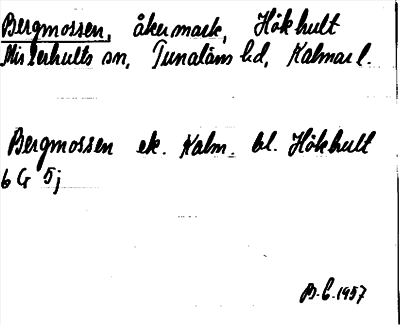 Bergmossen, åkermark, Hökhult
Misterhults sn, Tunaläns hd, Kalmar l.
Bergmossen ek. Kalm. bl. Hökhult
6 G 5j
B.C. 1957